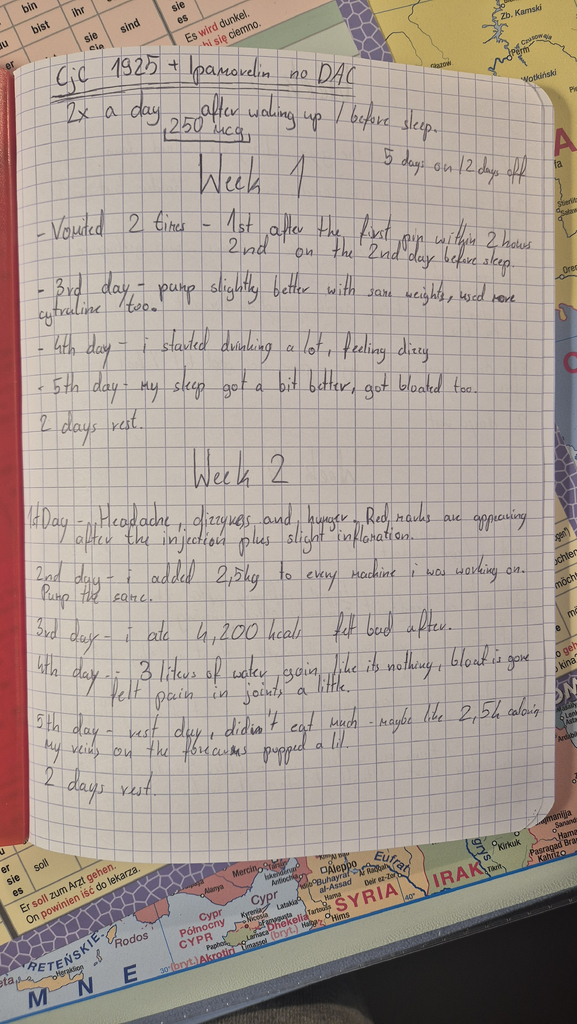 bin
ihr
du
bist
sie
sie
es
sind
Es wird dunkel.
er
CJC 1925 + Ipamorelin no DAC
2x a day after waking up / before sleep.
250 mcg
5 days on / 2 days off
Week 1
- Vomited 2 times - 1st after the first pin within 2 hours
2nd on the 2nd day before sleep.
- 3rd day - pump slightly better with same weights, used more
cytruline too.
- 4th day - i started drinking a lot, feeling dizzy
- 5th day - my sleep got a bit better, got bloated too.
2 days rest.
Week 2
1st Day - Headache, dizzyness and hunger. Red marks are appearing
after the injection plus slight inflamation.
2nd day - i added 2,5kg to every machine i was working on.
Pump the same.
3rd day - i ate 4,200 kcals felt bad after.
4th day - 3 liters of water again like its nothing, bloat is gone
felt pain in joints a little.
5th day - rest day, didin't eat much - maybe like 2,5k
My veins on the forearms popped a lil.
2 days rest.
Zb. Kamski
Perm
Wotkiński
er
sie
es
soll
Er soll zum Arzt gehen.
On powinien iść do lekarza.
Rodos
Heraklion
M N E
Cypr
Północny
CYPR
Cypr
Akrotiri
(bryt.)
Dhekelia
(bryt.)
Aleppo
Hims
Eufrat
SYRIA
IRAK
Kirkuk